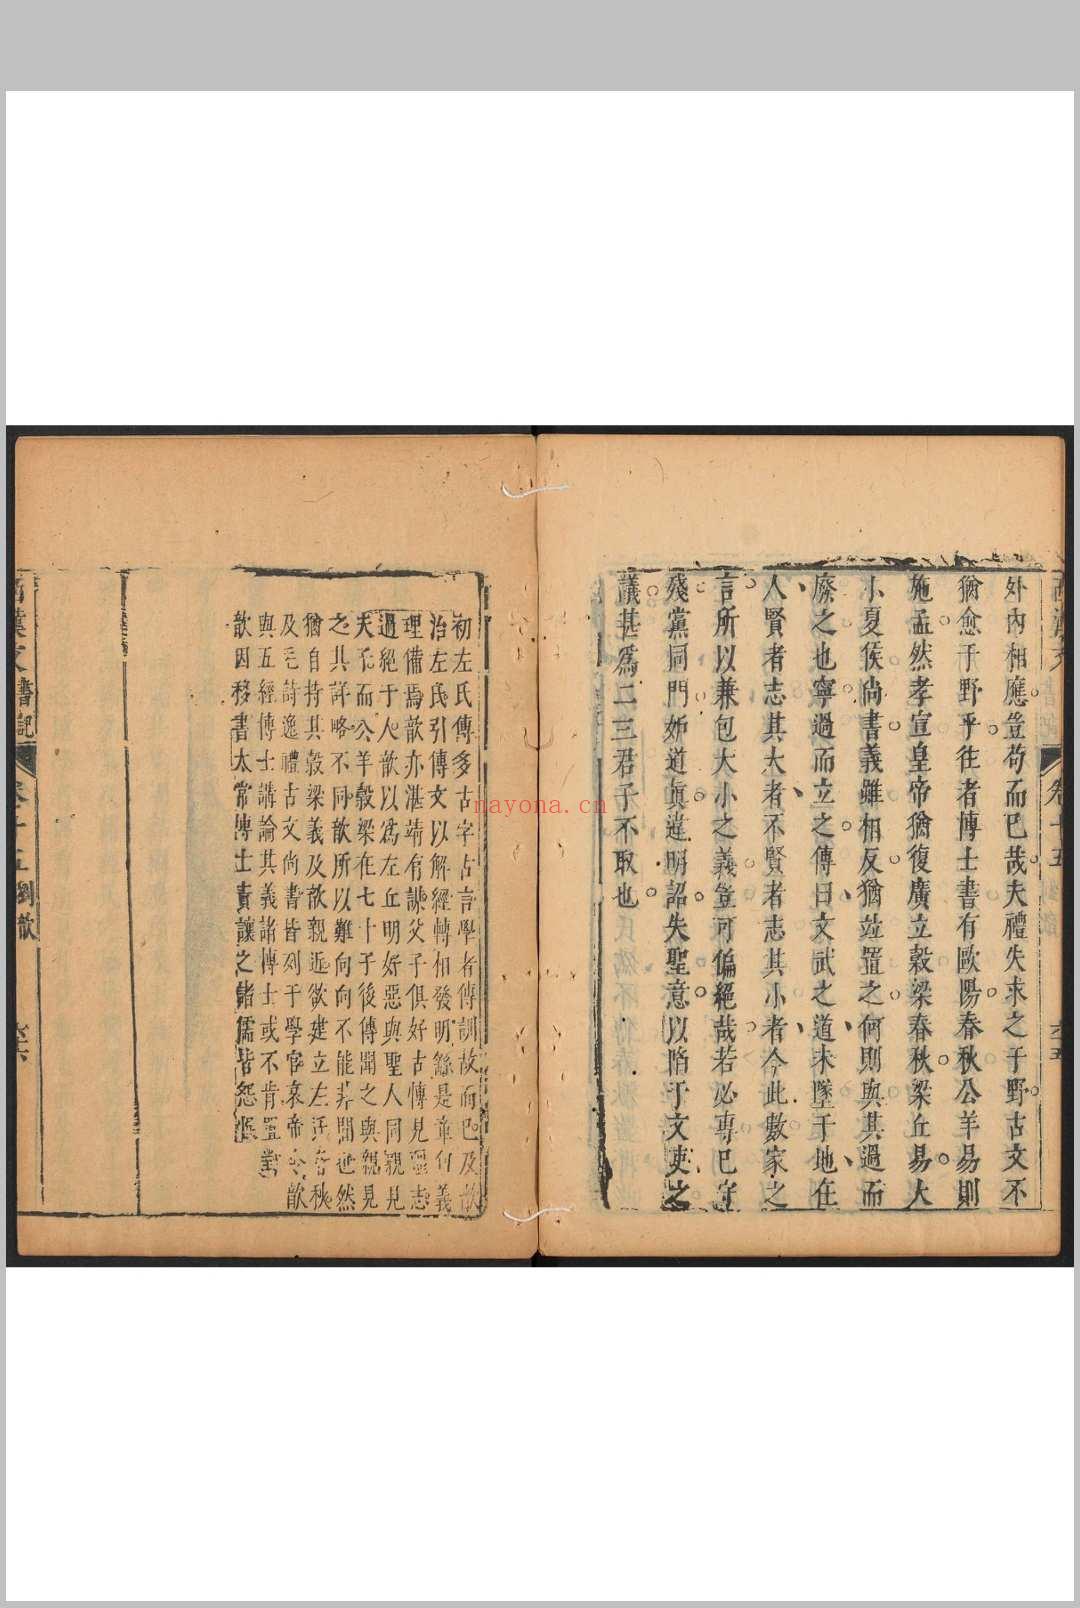 外內相應豈苟而已哉夫禮失求之于野古文不
猶愈于野乎往者博士書有歐陽春秋公羊易則
施孟然孝宣皇帝猶復廣立穀梁春秋梁丘易大
小夏侯尚書義雖相反猶竝置之何則與其過而
廢之也寧過而立之傳曰文武之道未墜于地在
人賢者志其大者不賢者志其小者今此數家之
言所以兼包大小之義豈可偏絕哉若必專己守
殘黨同門妒道眞違明詔失聖意以陷于文吏之
議甚爲二三君子不取也
西漢文 書記 卷十五
初左氏傳多古字古言學者傳訓故而已及歆
治左氏引傳文以解經轉相發明繇是章句義
理備焉歆亦湛靖有謀父子俱好古博見彊志
過絕于人歆以爲左丘明好惡與聖人同親見
夫子而公羊穀梁在七十子後傳聞之與親見
之其詳略不同歆所以難向向不能非間也然
猶自持其穀梁義及歆親近欲建立左氏春秋
及毛詩逸禮古文尚書皆列于學官哀帝令歆
與五經博士講論其義諸博士或不肯置對
歆因移書太常博士責讓之諸儒皆怨恨
西漢文 書記 卷十五 劉歆
nayona.cn